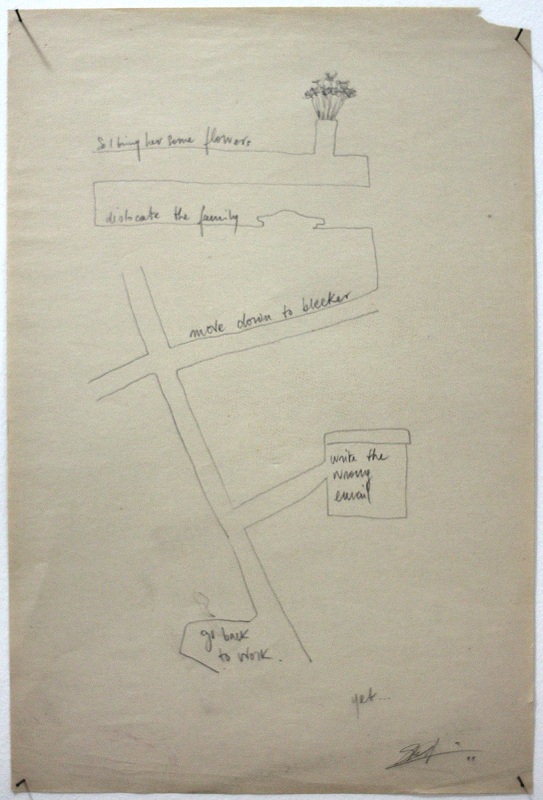 So I bring her some flowers
dislocate the family
move down to bleeker
write the
wrong
email
go back
to work.
yet...